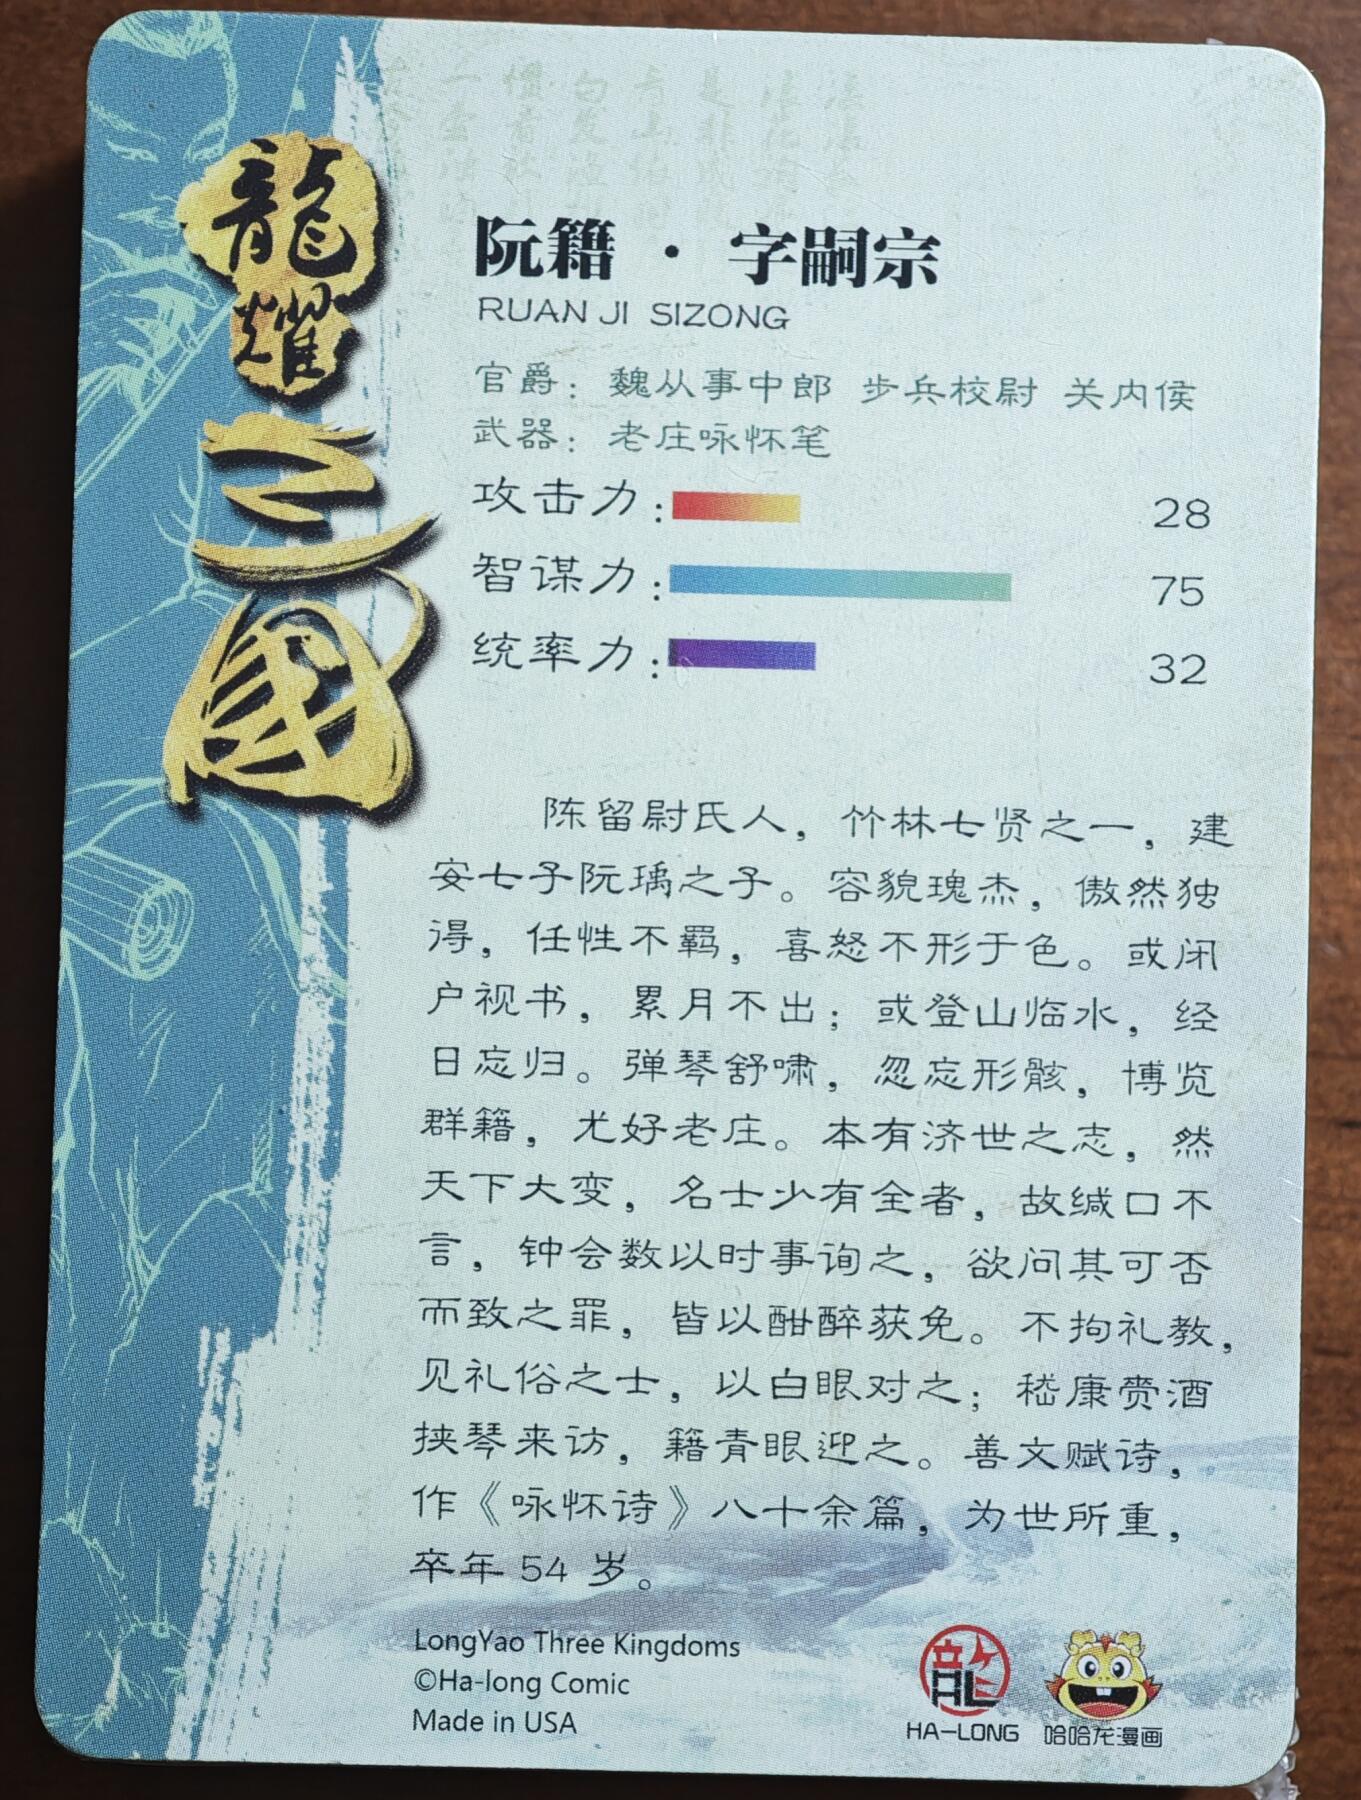 龍耀三國
阮籍 · 字嗣宗
RUAN JI SIZONG
官爵：魏从事中郎 步兵校尉 关内侯
武器：老庄咏怀笔
攻击力：28
智谋力：75
统率力：32
陈留尉氏人，竹林七贤之一，建
安七子阮瑀之子。容貌瑰杰，傲然独
得，任性不羁，喜怒不形于色。或闭
户视书，累月不出；或登山临水，经
日忘归。弹琴舒啸，忽忘形骸，博览
群籍，尤好老庄。本有济世之志，然
天下大变，名士少有全者，故缄口不
言，钟会数以时事询之，欲问其可否
而致之罪，皆以酣醉获免。不拘礼教，
见礼俗之士，以白眼对之；嵇康赍酒
挟琴来访，籍青眼迎之。善文赋诗，
作《咏怀诗》八十余篇，为世所重，
卒年 54 岁。
LongYao Three Kingdoms
©Ha-long Comic
Made in USA
龍
HA-LONG
哈哈龙漫画